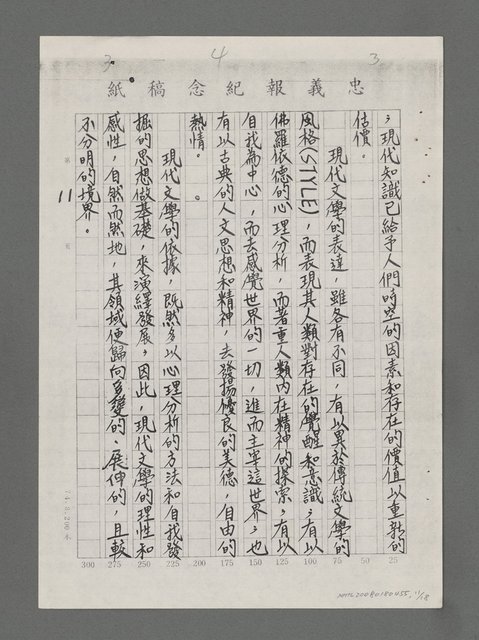 3 4 3
忠義報紀念稿紙
；現代知識已給予人們時空的因素和存在的價值以重新的
估價。
現代文學的表達，雖各有不同，有以異於傳統文學的
風格(STYLE)，而表現其人類對存在的覺醒和意識；有以
佛羅依德的心理分析，而著重人類內在精神的探索；有以
自我為中心，而去感覺世界的一切，進而主宰這世界；也
有以古典的人文思想和精神，去發揚優良的美德，自由的
熱情。
現代文學的依據，既然多以心理分析的方法和自我發
掘的思想做基礎，來演繹發展；因此，現代文學的理性和
感性，自然而然地，其領域便歸向多變的、展伸的，且較
不分明的境界。
第 11 頁
300 275 250 225 200 175 150 125 100 75 50 25
NMTL20080180455, 11/18